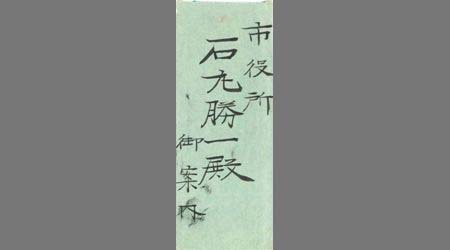 市役所
石丸勝一殿
御案内